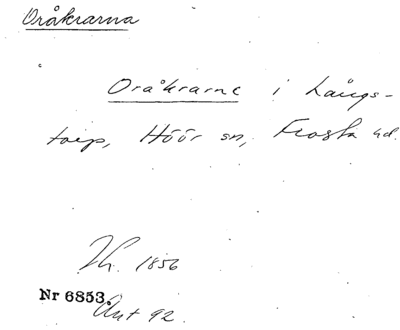 Oråkrarna
Oråkrarne i Långs-
torp, Höör sn, Frosta hd.
Th. 1856
Nr 6853.
Ant 92.